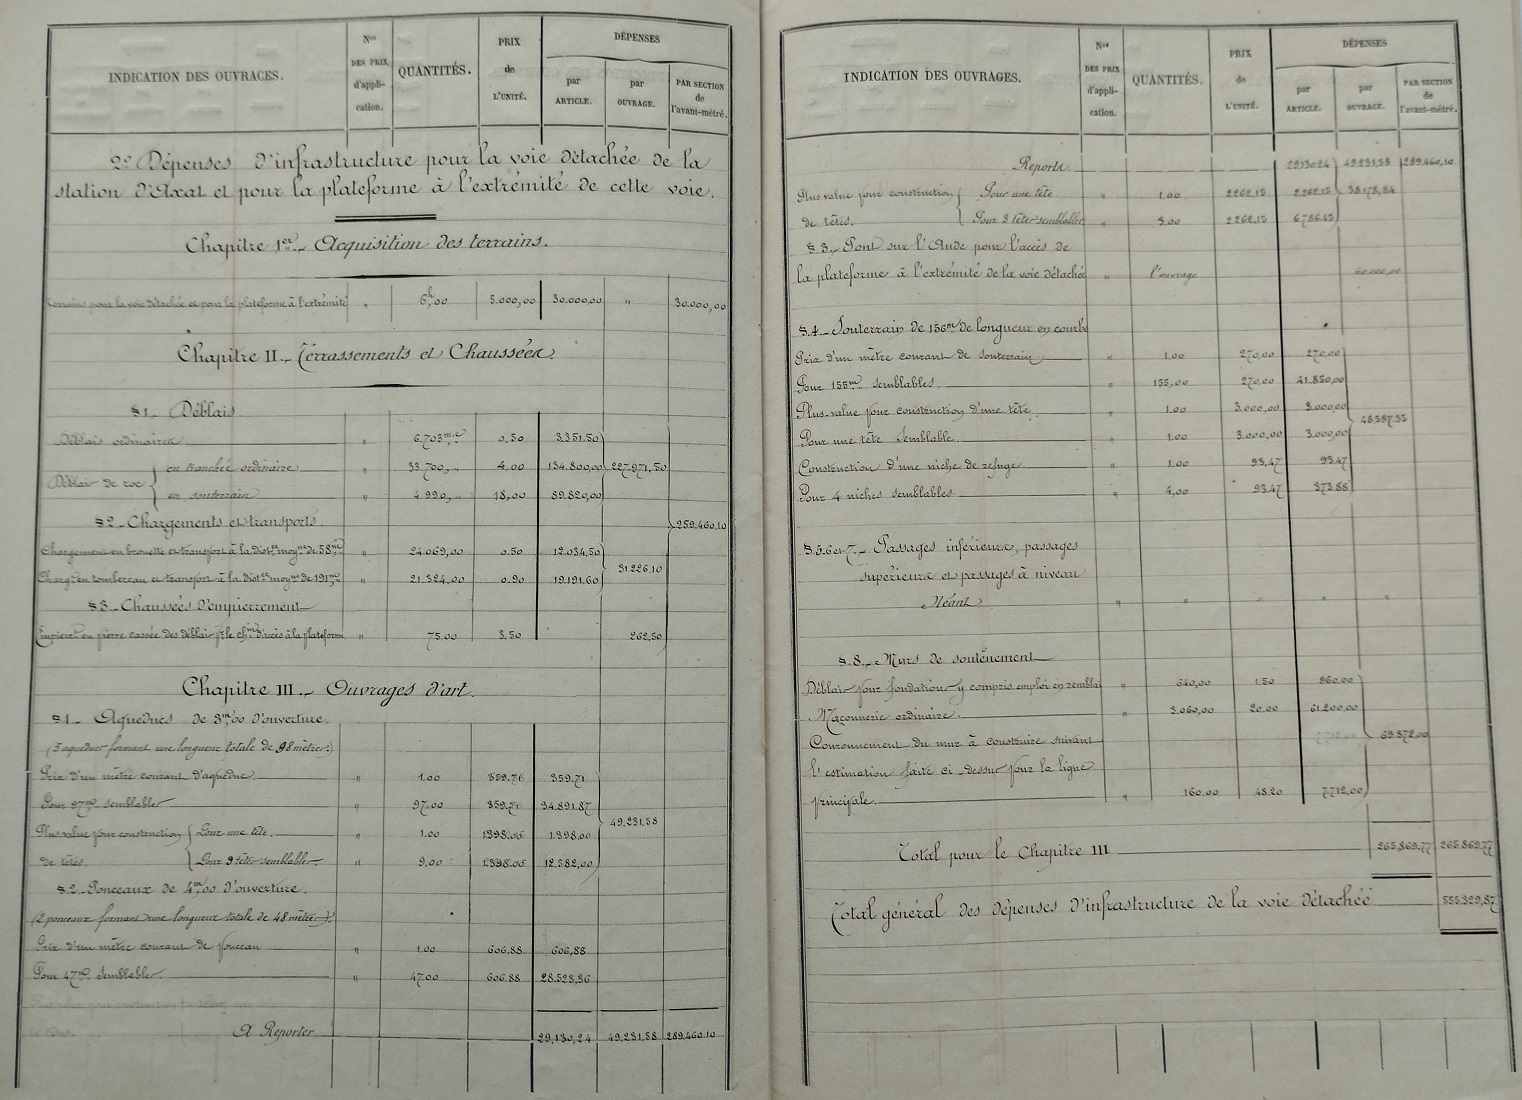 INDICATION DES OUVRAGES. Nos DES PRIX d'appli-cation. QUANTITÉS. PRIX de L'UNITÉ. DÉPENSES par ARTICLE. par OUVRAGE. PAR SECTION de l'avant-métré.
2° Dépenses d'infrastructure pour la voie détachée de la
station d'Axat et pour la plateforme à l'extrémité de cette voie.
Chapitre 1er_ Acquisition des terrains.
Terrains pour la voie détachée et pour la plateforme à l'extrémité " 6h,00 5.000,00 30.000,00 " 30.000,00
Chapitre II._ Terrassements et Chaussées
§1_ Déblais
Déblais ordinaires " 6.703m.c 0,50 3.351,50
Déblais de roc { en tranchée ordinaire " 33.700,,, 4.00 134.800,00 227.971,50
en souterrain " 4.990,,, 18,00 89.820,00
§2_ Chargements et transports. 259.460,10
Chargement en brouette et transport à la distce moyne de 58m " 24.069,00 0.50 12.034,50
31.226,10
Chargt en tombereau et transport à la distce moyne de 191m " 21.324,00 0.90 19.191,60
§3_ Chaussées d'empierrement
Empierrt en pierre cassée des déblais pr le chin d'accès à la plateforme " 75.00 3,50 262,50
Chapitre III._ Ouvrages d'art.
§1_ Aqueducs de 3m,00 d'ouverture.
(5 aqueducs formant une longueur totale de 98 mètres.)
Prix d'un mètre courant d'aqueduc " 1.00 359.71 359,71
Pour 97m semblables " 97.00 359.71 34.891,87
49.231,58
Plus value pour construction { Pour une tête. " 1.00 1398.00 1.398,00
de têtes. { Pour 9 têtes semblables " 9,00 1398.00 12.582,00
§.2_ Ponceaux de 4m,00 d'ouverture.
(2 ponceaux formant une longueur totale de 48 mètres.)
Prix d'un mètre courant de ponceau " 1.00 606.88 606,88
Pour 47m semblables " 47.00 606.88 28.523,36
A Reporter 29,130,24 49,231,58 289.460.10
INDICATION DES OUVRAGES. Nos DES PRIX d'appli-cation. QUANTITÉS. PRIX de L'UNITÉ. DÉPENSES par ARTICLE. par OUVRAGE. PAR SECTION de l'avant-métré.
Reports 29.130.24 49.231,58 289.460,10
Plus value pour construction { Pour une tête " 1.00 2262.15 2.262.15 38.178,84
de têtes. { Pour 3 têtes semblables " 3.00 2262.15 6.786.45
§.3_ Pont sur l'Aude pour l'accès de
la plateforme à l'extrémité de la voie détachée " l'ouvrage 60.000,00
§.4_ Souterrain de 156m de longueur en courbe
Prix d'un mètre courant de souterrain " 1.00 270,00 270,00
Pour 155m semblables " 155,00 270.00 41.850,00
Plus-value pour construction d'une tête " 1.00 3.000,00 3.000,00
48.587.35
Pour une tête Semblable " 1.00 3.000,00 3.000,00
Construction d'une niche de refuge " 1.00 93,47 93.47
Pour 4 niches semblables " 4,00 93.47 373.88
§.5.6 et 7._ Passages inférieurs, passages
supérieurs et passages à niveau
Néant " " " "
§.8._ Murs de soutènement
Déblais pour fondation y compris emploi en remblai " 640,00 1.50 960.00
Maçonnerie ordinaire " 3.060,00 20.00 61.200,00
Couronnement du mur à construire suivant 69.872,00
l'estimation faite ci-dessus pour la ligne
principale " 160.00 48.20 7.712,00
Total pour le Chapitre III 265.869.77 265.869.77
Total général des dépenses d'infrastructure de la voie détachée 555.329,87